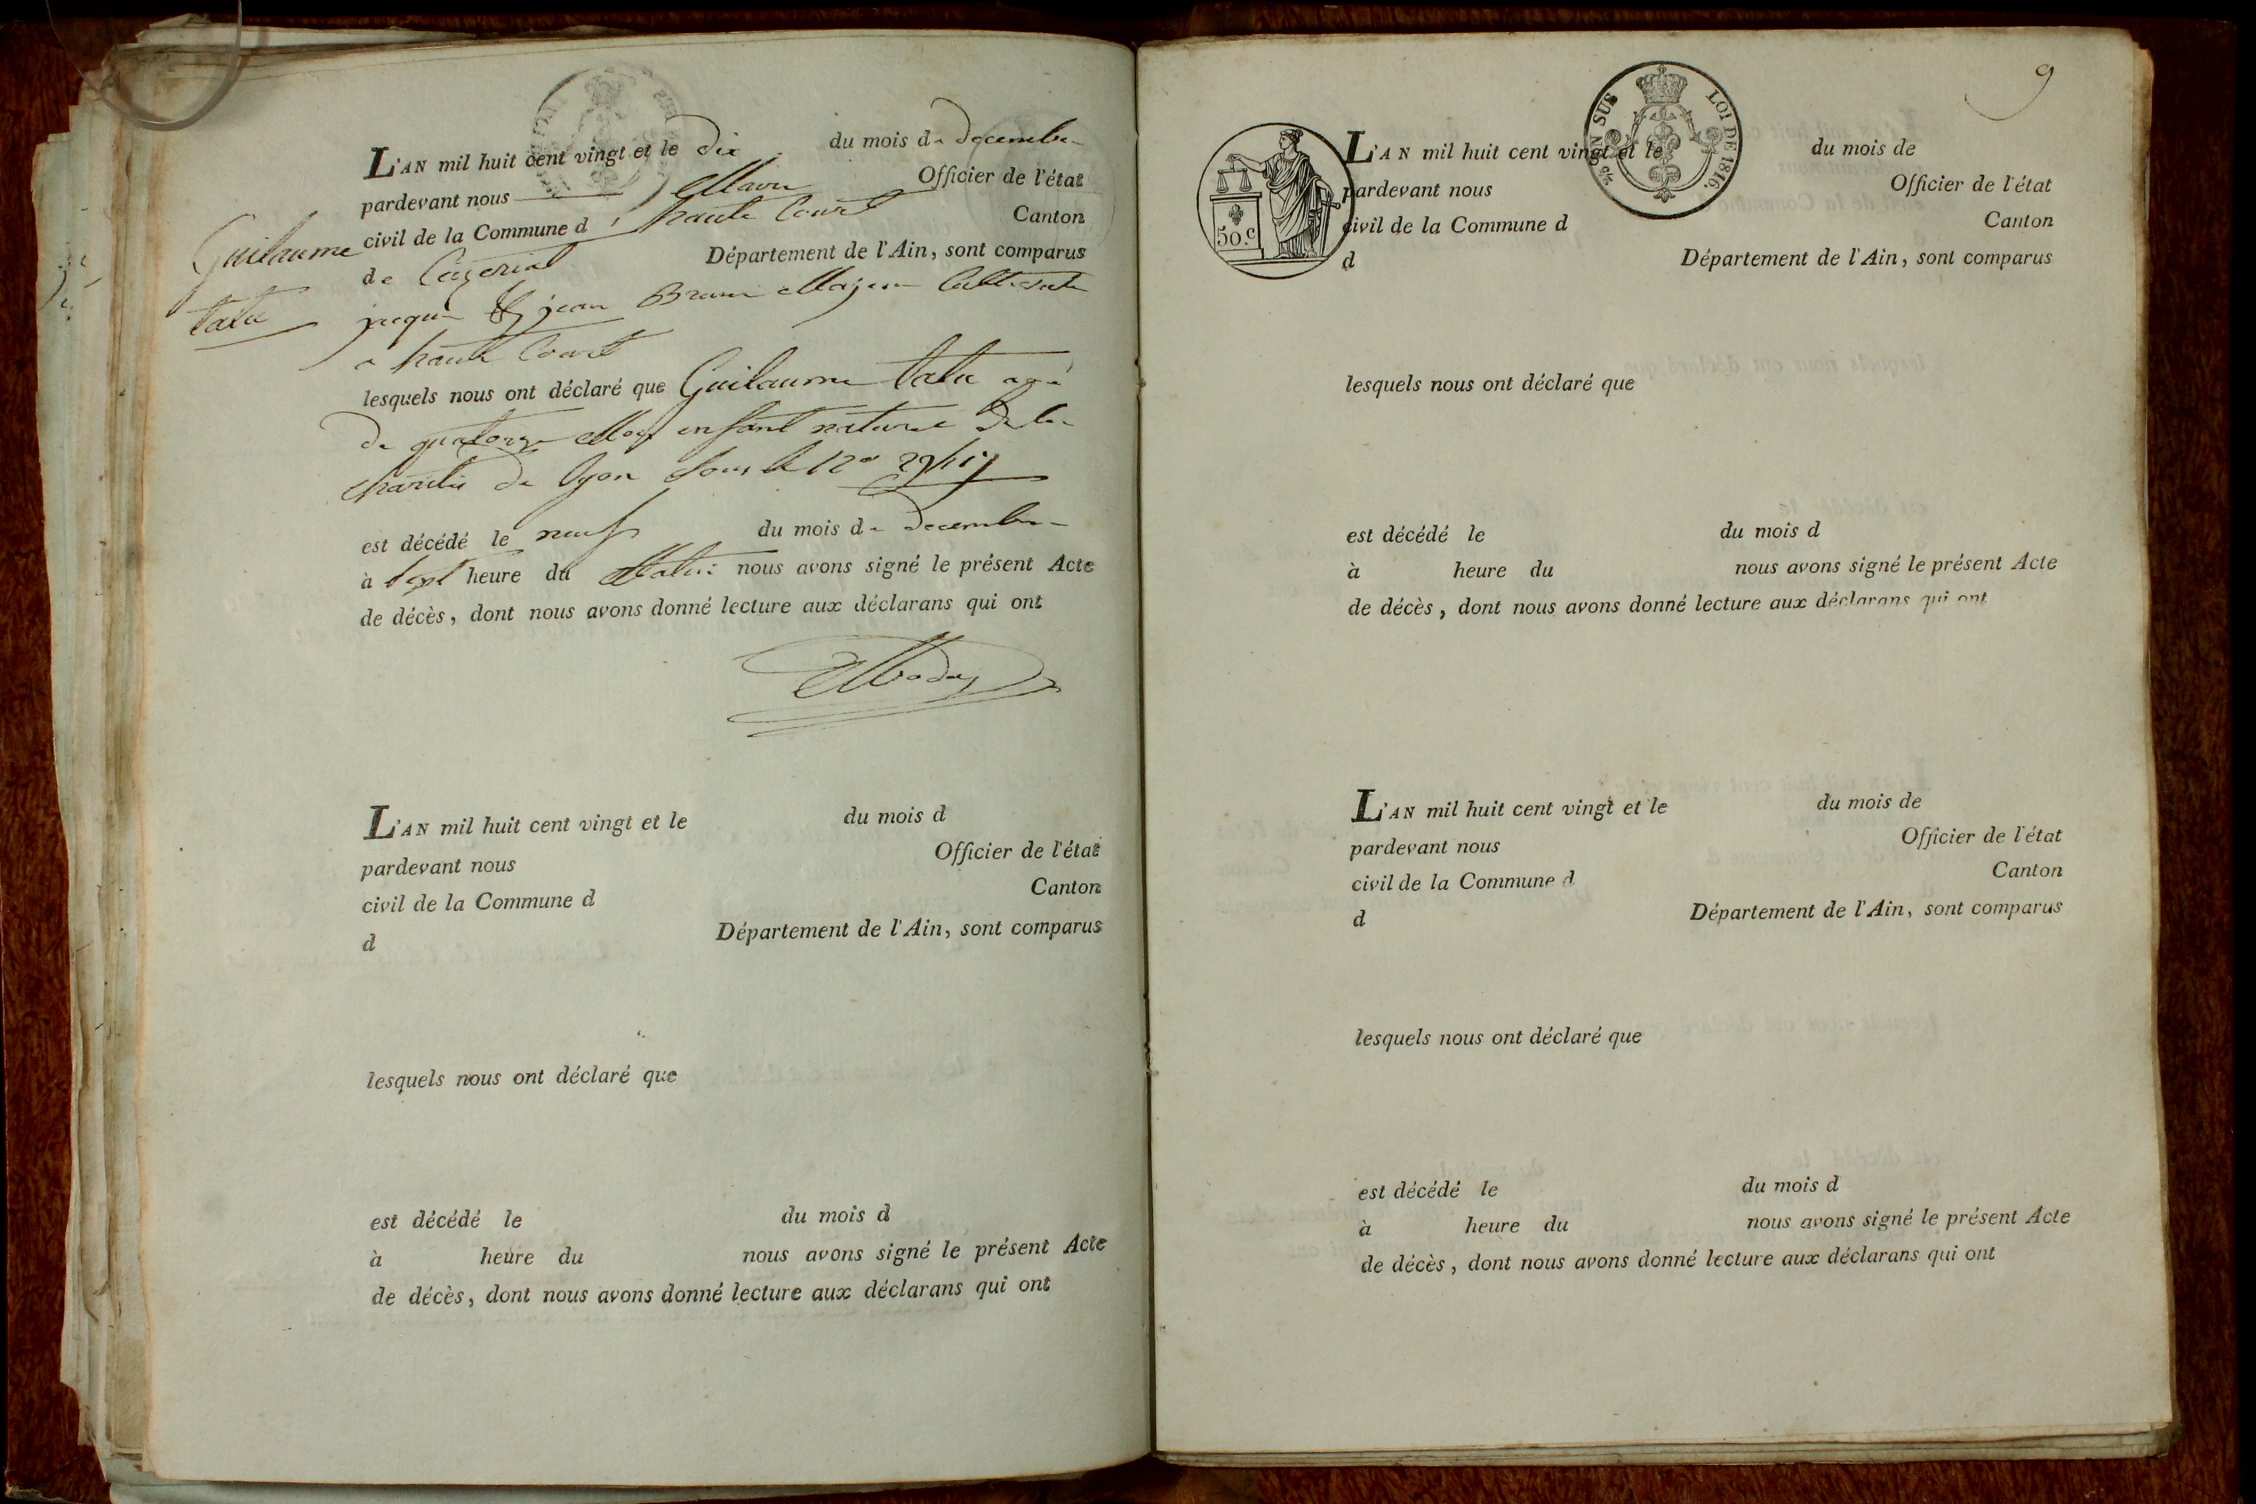 L'AN mil huit cent vingt et le dix du mois de decembre
pardevant nous Maire Officier de l'état
civil de la Commune d'haute Court Canton
de Ceyzeriat Département de l'Ain, sont comparus
Guilaume
tatu
jaques & jean Brun Majeur Cultivateur
a haute Court
lesquels nous ont déclaré que Guilaume tatu agé
de quatorze Mois enfant naturel de la
charité de lyon sous le
est décédé le neuf du mois de decembre
à sept heure du Matin nous avons signé le présent Acte
de décès, dont nous avons donné lecture aux déclarans qui ont
L'AN mil huit cent vingt et le du mois d
pardevant nous Officier de l'état
civil de la Commune d Canton
d Département de l'Ain, sont comparus
lesquels nous ont déclaré que
est décédé le du mois d
à heure du nous avons signé le présent Acte
de décès, dont nous avons donné lecture aux déclarans qui ont
9
EN SUS LOI DE 1816.
50.c
L'AN mil huit cent vingt et le du mois de
pardevant nous Officier de l'état
civil de la Commune d Canton
d Département de l'Ain, sont comparus
lesquels nous ont déclaré que
est décédé le du mois d
à heure du nous avons signé le présent Acte
de décès, dont nous avons donné lecture aux déclarans qui ont
L'AN mil huit cent vingt et le du mois de
pardevant nous Officier de l'état
civil de la Commune d Canton
d Département de l'Ain, sont comparus
lesquels nous ont déclaré que
est décédé le du mois d
à heure du nous avons signé le présent Acte
de décès, dont nous avons donné lecture aux déclarans qui ont